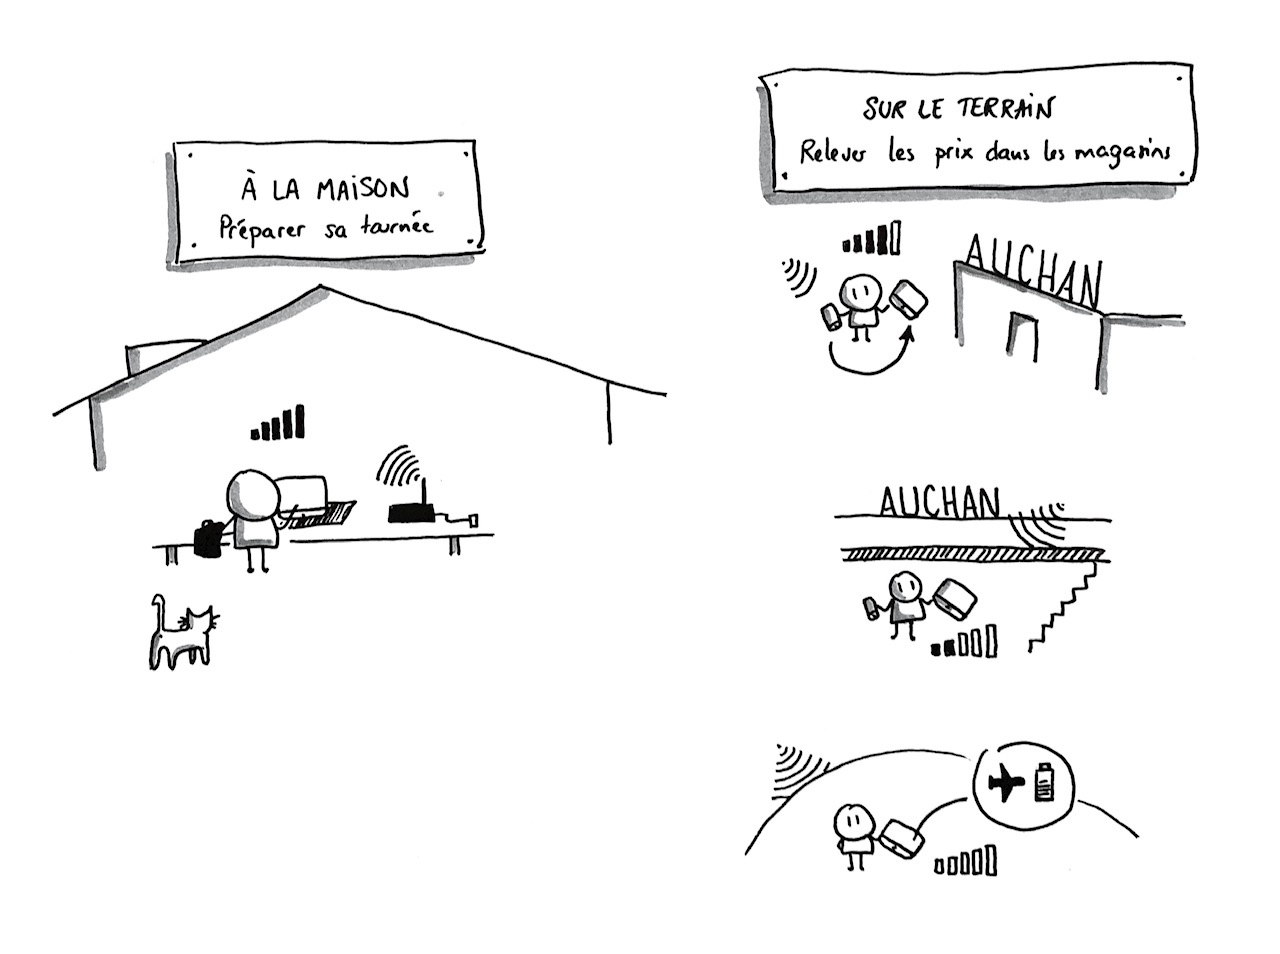 À LA MAISON
Préparer sa tournée
SUR LE TERRAIN
Relever les prix dans les magasins
AUCHAN
AUCHAN